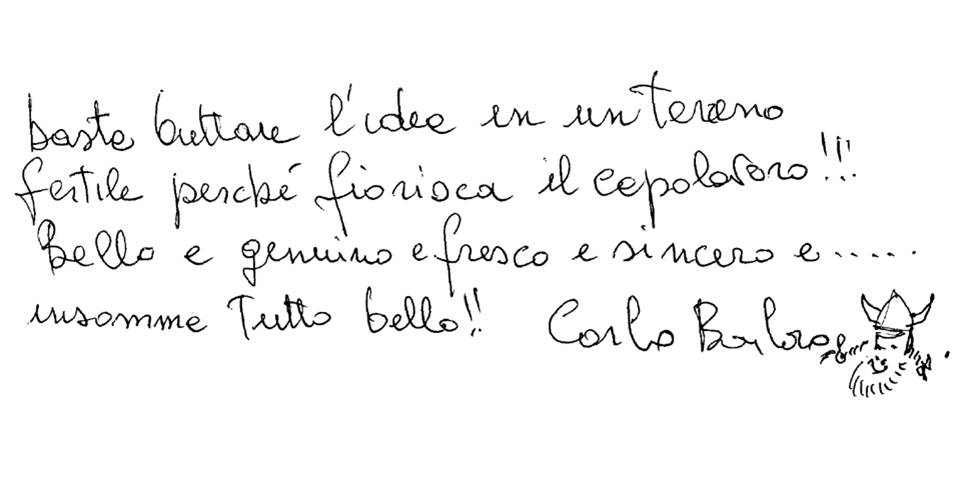 basta buttare l'idea in un terreno
fertile perché fiorisca il capolavoro!!!
Bello e genuino e fresco e sincero e.....
insomma Tutto bello!! Carlo